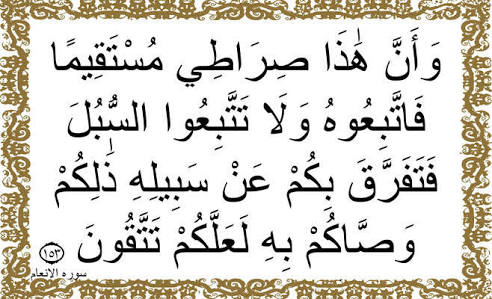 وَأَنَّ هَٰذَا صِرَاطِي مُسْتَقِيمًا
فَاتَّبِعُوهُ وَلَا تَتَّبِعُوا السُّبُلَ
فَتَفَرَّقَ بِكُمْ عَنْ سَبِيلِهِ ذَٰلِكُمْ
وَصَّاكُمْ بِهِ لَعَلَّكُمْ تَتَّقُونَ ﴿١٥٣﴾
سوره الانعام